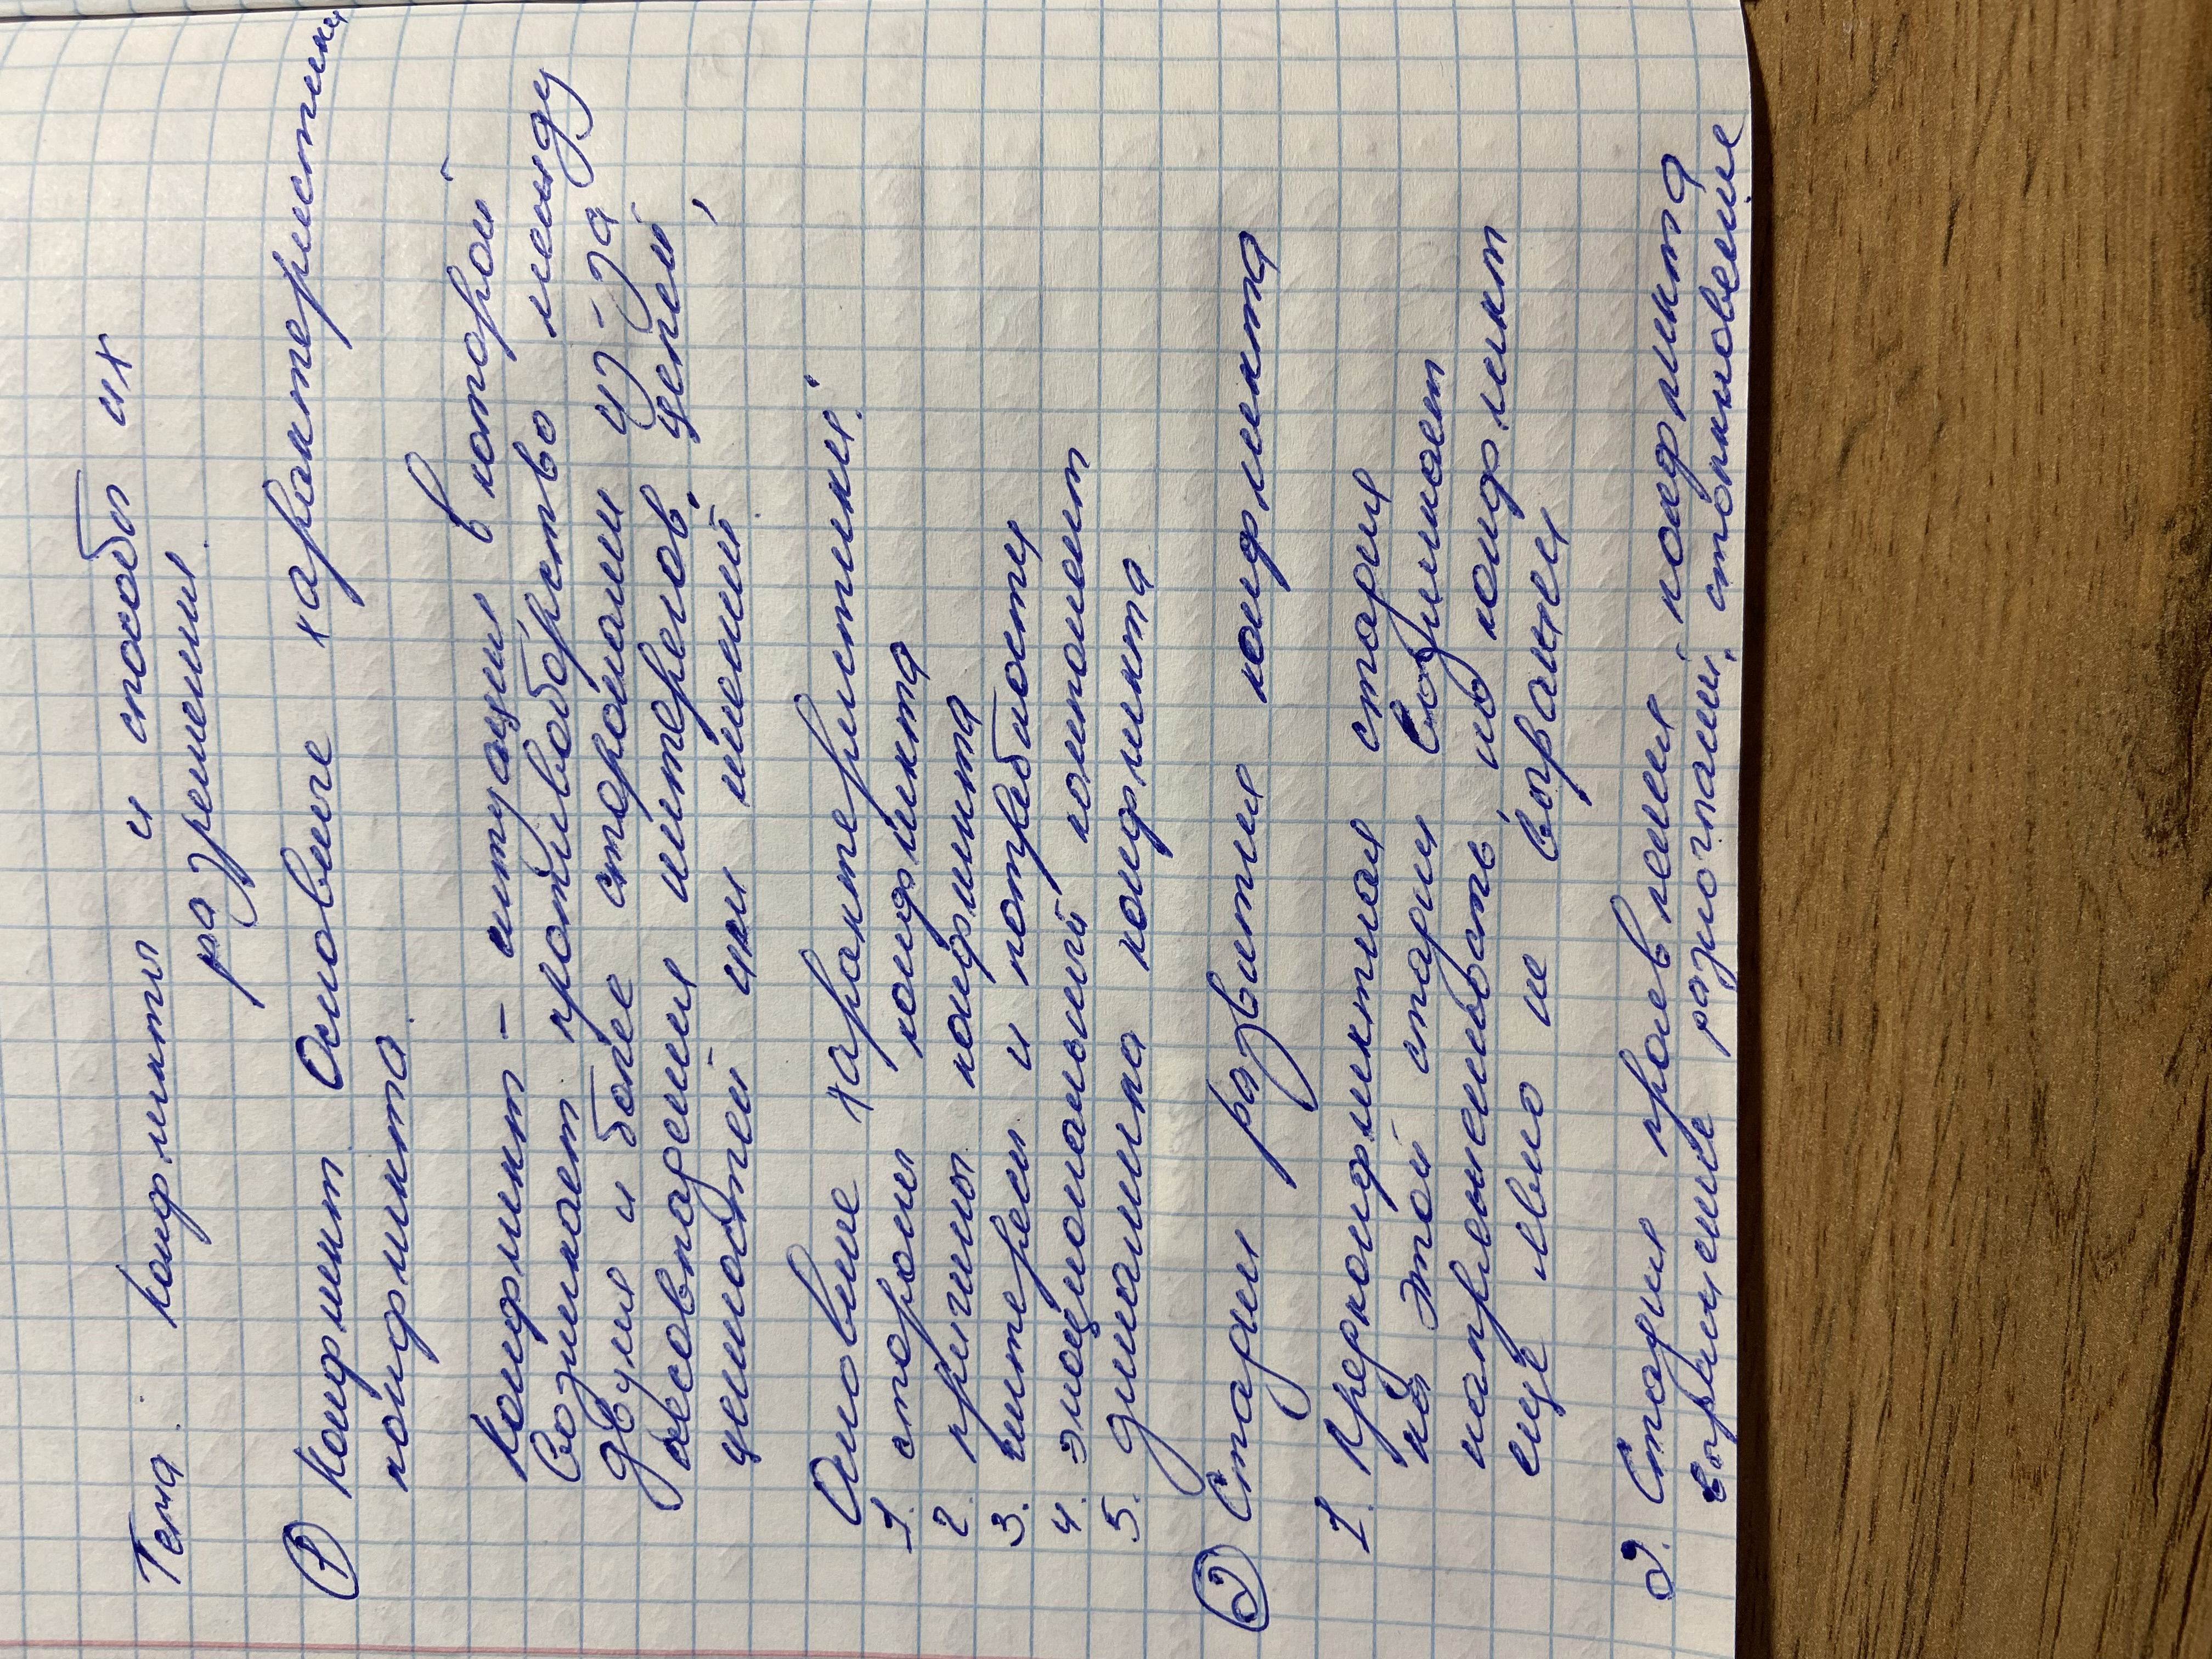 Тема: Конфликты и способы их
разрешения.
① Конфликт. Основные характеристики
конфликта.
Конфликт - ситуация в которой
возникает противоборство между
двумя и более сторонами из-за
несовпадения интересов, целей,
ценностей или мнений.
Основные характеристики:
1. стороны конфликта
2. причины конфликта
3. интересы и потребности
4. эмоциональный компонент
5. динамика конфликта
② Стадии развития конфликта
1. Предконфликтная стадия
на этой стадии возникает
напряженность но конфликт
еще явно не выражен
2. Стадия проявления конфликта
разногласий, столкновение